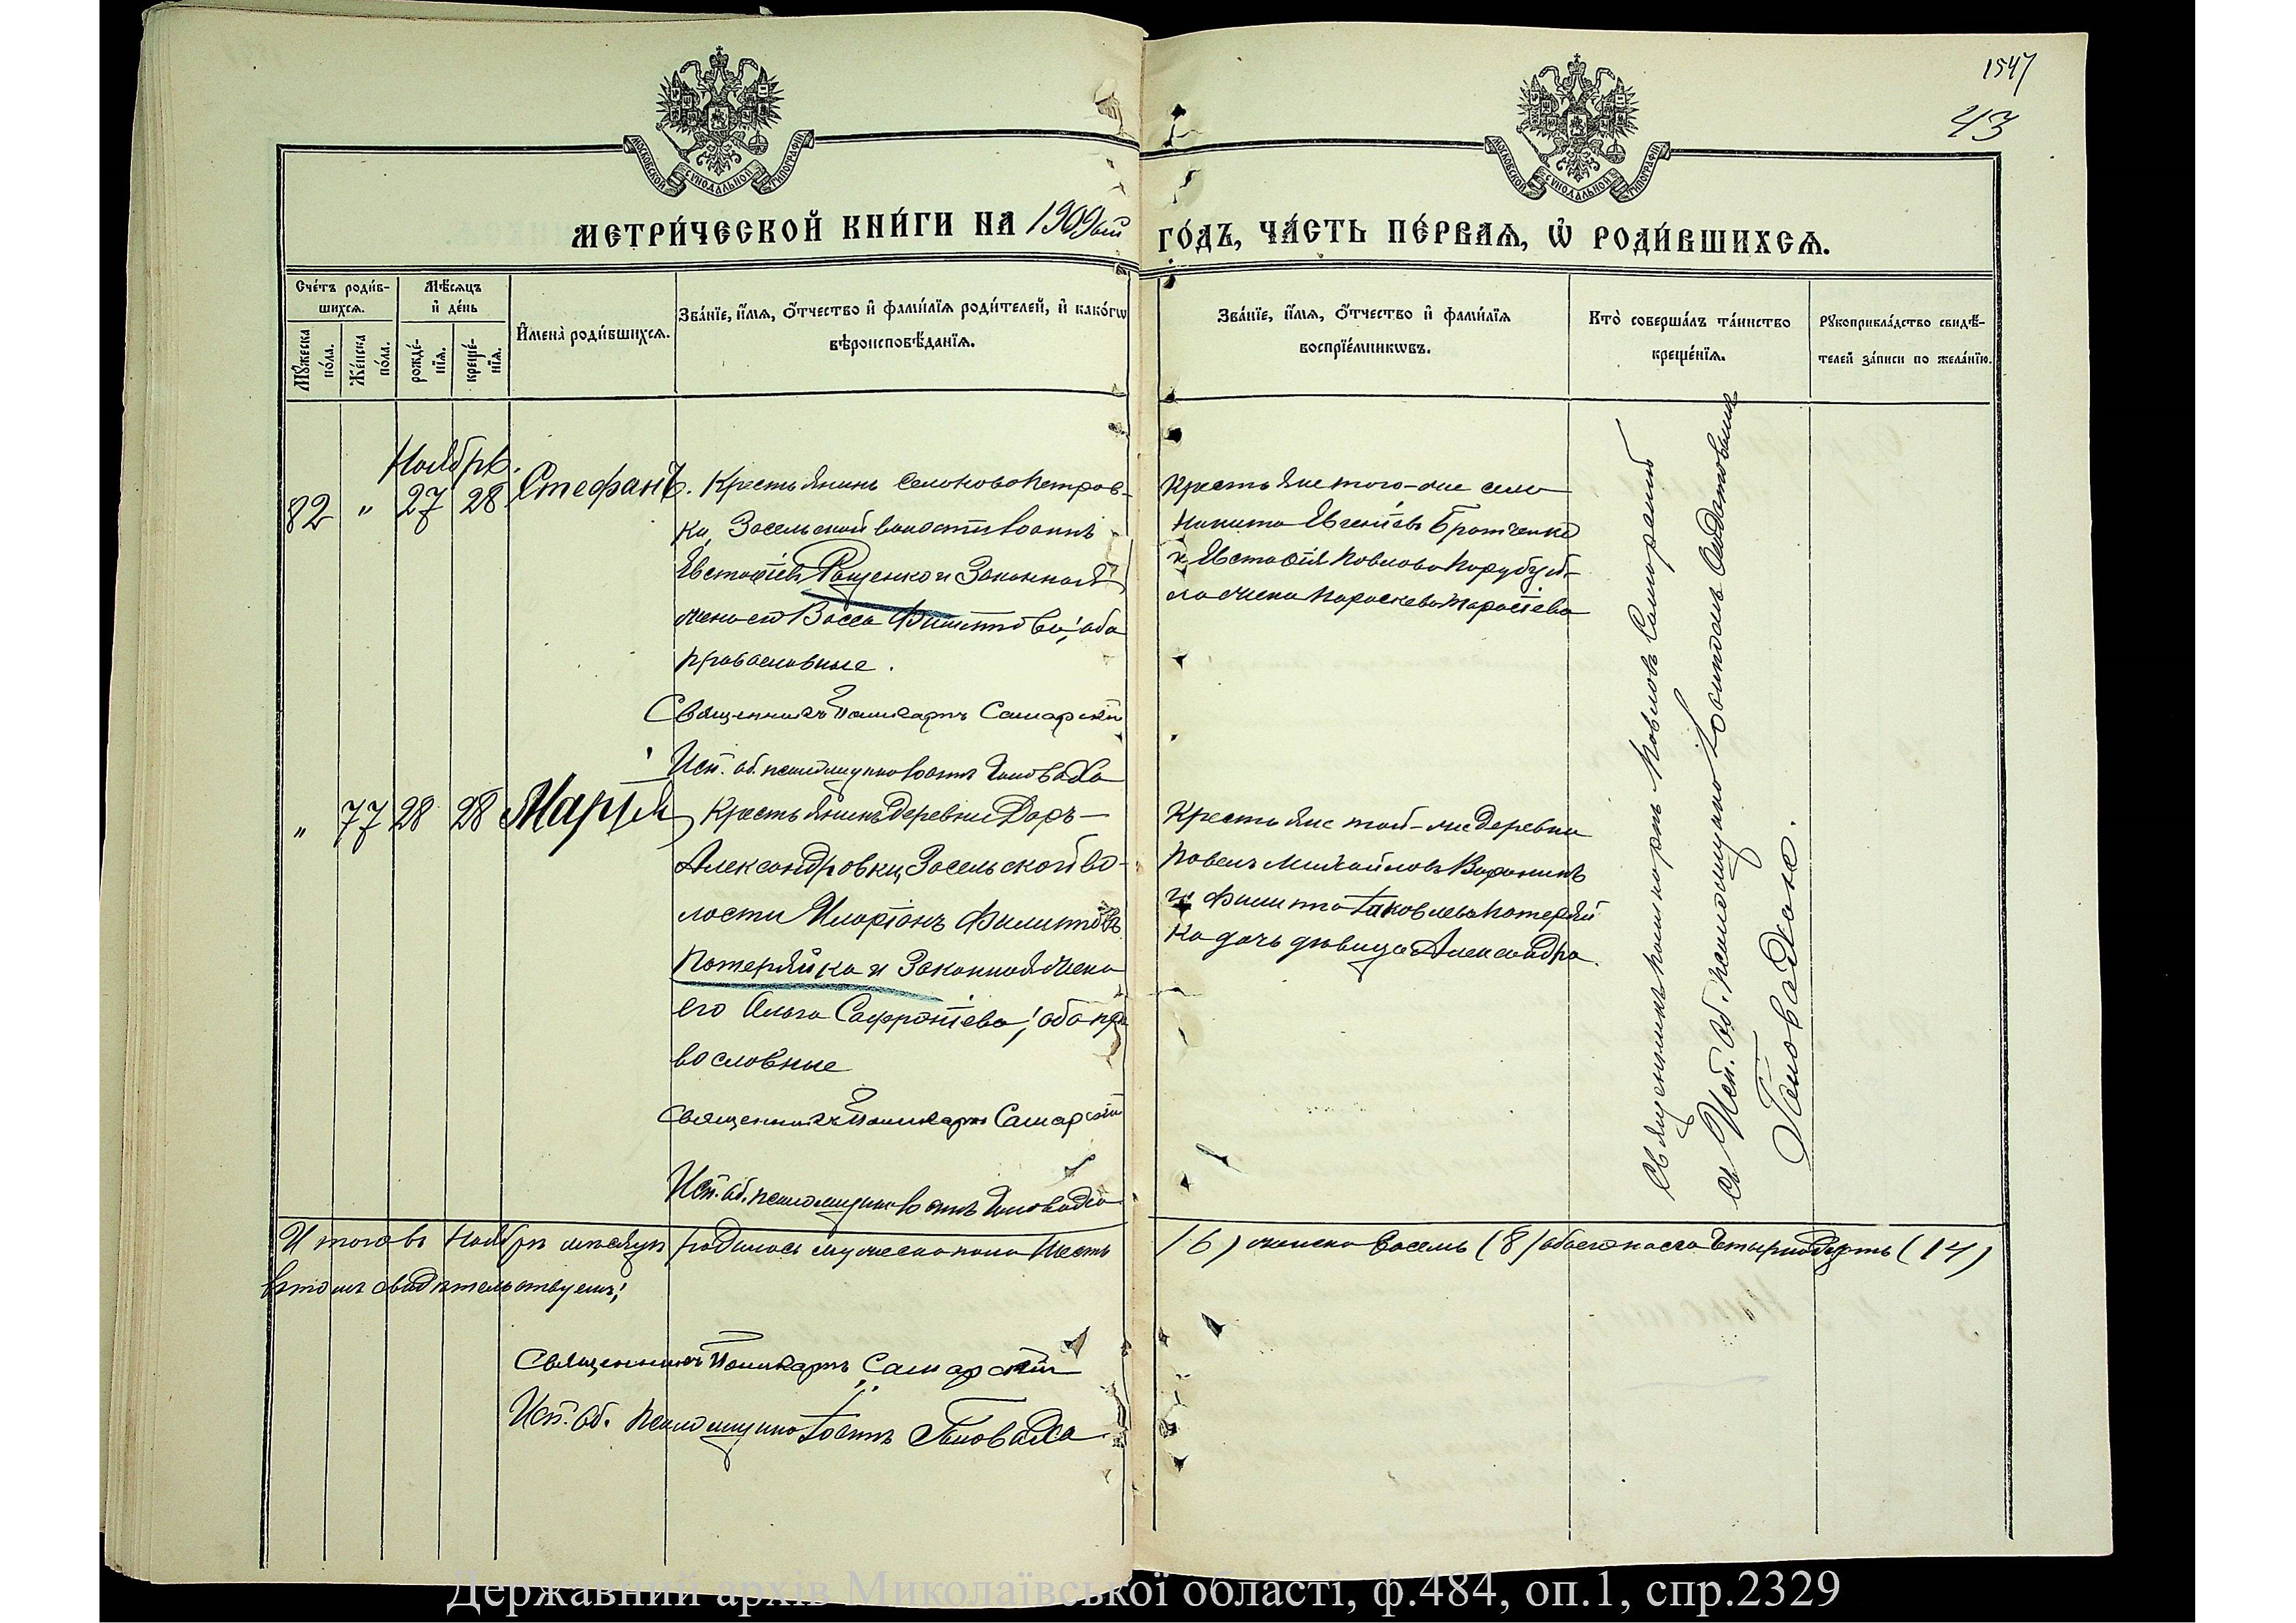 1547
43
МОСКОВСКОЙ СѴНОДАЛЬНОЙ ТИПОГРАФІИ
МОСКОВСКОЙ СѴНОДАЛЬНОЙ ТИПОГРАФІИ
МЕТРИ́ЧЕСКОЙ КНИ́ГИ НА 1909ый
ГО́ДЪ, ЧА́СТЬ ПЕ́РВАѦ, Ѡ҆ РОДИ́ВШИХСѦ.
Сче́тъ роди́в-
шихсѧ.
Мꙋ́жеска
по́ла.
Же́нска
по́ла.
Мѣ́сѧцъ
и҆ де́нь
рожде́-
нїѧ.
креще́-
нїѧ.
И҆мена̀ роди́вшихсѧ.
Зва́нїе, и҆́мѧ, ѻ҆́тчество и҆ фами́лїѧ роди́телей, и҆ како́гѡ
вѣроисповѣ́данїѧ.
Зва́нїе, и҆́мѧ, ѻ҆́тчество и҆ фами́лїѧ
воспрїе́мникѡвъ.
Кто̀ соверша́лъ та́инство
креще́нїѧ.
Рꙋкоприкла́дство свидѣ́-
телей за́писи по жела́нїю.
Ноябрь.
82 " 27 28 Стефанъ.
Крестьянинъ села Новопетров-
ки, Засельской волости Іоаннъ
Евстафіевъ Ращенко и законная
жена его Васса Филиппова; оба
православные.
Священникъ Поликарпъ Самарскій
Исп. об. псаломщика Іоаннъ Головадха
Крестьяне того-же села
Никита Евгеніевъ Братченко
и Евстафія Павлова
жена Параскева Тарасіева
" 77 28 28 Марія
Крестьянинъ деревни Даръ-
Александровки, Засельской во-
лости Иларіонъ Филипповъ
Потеряйко и законная жена
его Ольга Софроніева; оба пра
вославные
Священникъ Поликарпъ Самарскій
Исп. об. псаломщика Іоаннъ
Крестьяне той-же деревни
Павелъ Михайловъ Воронинъ
и Филиппа Іаковлева Потеряй
ка дочь дѣвица Александра.
Священникъ Поликарпъ Павловъ Самарскій
съ Исп. об. псаломщика Іоанномъ
Итого въ Ноябрѣ мѣсяцѣ родилось мужеска пола шесть
(6) женска восемь (8) обоего пола четырнадцать (14)
въ томъ свидѣтельствуемъ:
Священникъ Поликарпъ Самарскій
Исп. об. псаломщика Іоаннъ
Державний архів Миколаївської області, ф.484, оп.1, спр.2329